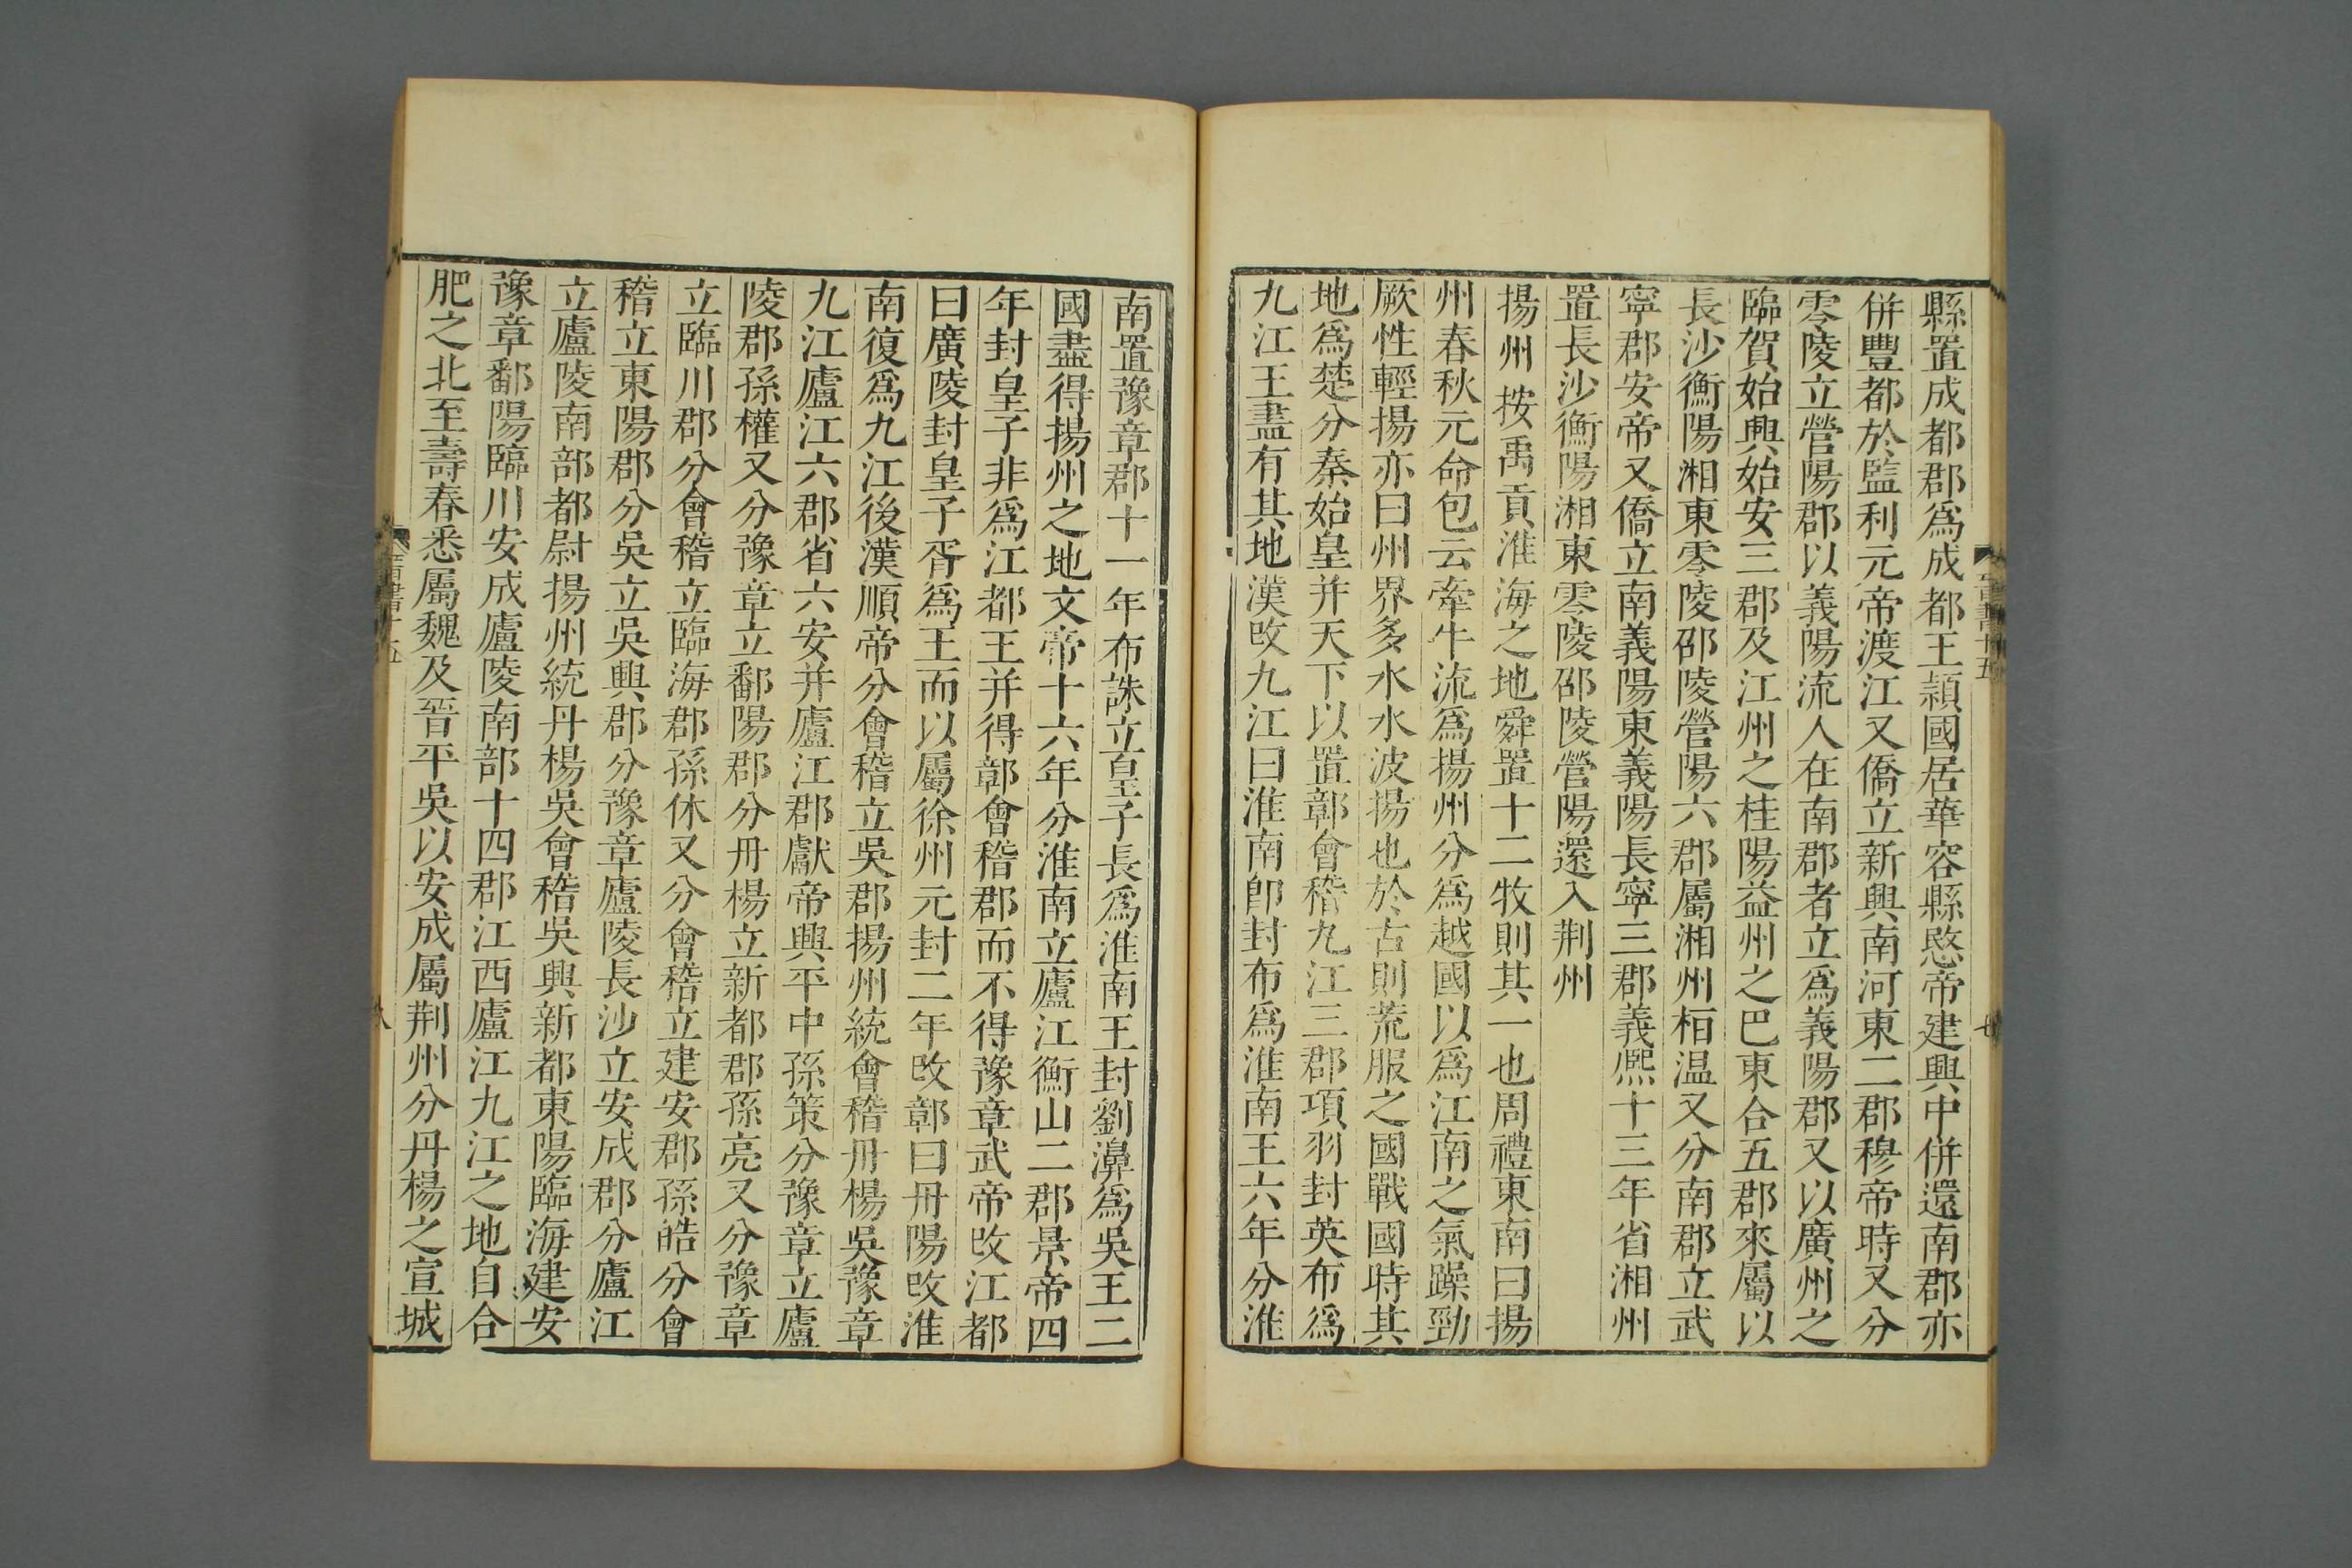 縣置成都郡爲成都王穎國居華容縣愍帝建興中併還南郡亦
併豐都於監利元帝渡江又僑立新興南河東二郡穆帝時又分
零陵立營陽郡以義陽流人在南郡者立爲義陽郡又以廣州之
臨賀始興始安三郡及江州之桂陽益州之巴東合五郡來屬以
長沙衡陽湘東零陵邵陵營陽六郡屬湘州桓温又分南郡立武
寧郡安帝又僑立南義陽東義陽長寧三郡義熙十三年省湘州
置長沙衡陽湘東零陵邵陵營陽還入荆州
揚州按禹貢淮海之地舜置十二牧則其一也周禮東南曰揚
州春秋元命包云牽牛流爲揚州分爲越國以爲江南之氣躁勁
厥性輕揚亦曰州界多水水波揚也於古則荒服之國戰國時其
地爲楚分秦始皇并天下以置鄣會稽九江三郡項羽封英布爲
九江王盡有其地漢改九江曰淮南卽封布爲淮南王六年分淮
南置豫章郡十一年布誅立皇子長爲淮南王封劉濞爲吳王二
國盡得揚州之地文帝十六年分淮南立廬江衡山二郡景帝四
年封皇子非爲江都王并得鄣會稽郡而不得豫章武帝改江都
曰廣陵封皇子胥爲王而以屬徐州元封二年改鄣曰丹陽改淮
南復爲九江後漢順帝分會稽立吳郡揚州統會稽丹楊吳豫章
九江廬江六郡省六安并廬江郡獻帝興平中孫策分豫章立廬
陵郡孫權又分豫章立鄱陽郡分丹楊立新都郡孫亮又分豫章
立臨川郡分會稽立臨海郡孫休又分會稽立建安郡孫皓分會
稽立東陽郡分吳立吳興郡分豫章廬陵長沙立安成郡分廬江
立廬陵南部都尉揚州統丹楊吳會稽吳興新都東陽臨海建安
豫章鄱陽臨川安成廬陵南部十四郡江西廬江九江之地自合
肥之北至壽春悉屬魏及晉平吳以安成屬荆州分丹楊之宣城